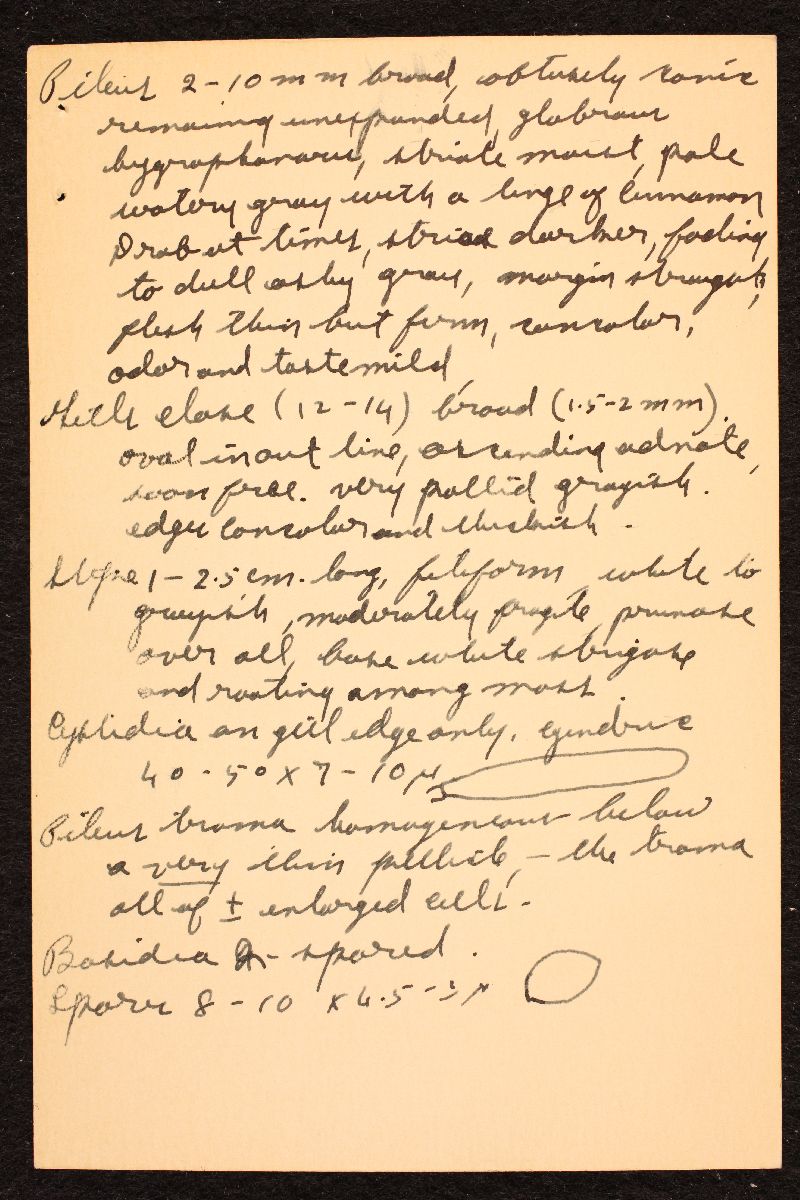 Pileus 2-10 mm broad, obtusely conic
remaining unexpanded, glabrous
hygrophanous, striate moist, pale
watery gray with a tinge of Cinnamon
Drab at times, striae darker, fading
to dull ashy gray, margin straight,
flesh thin but firm, concolor,
odor and taste mild
Gills close (12-14) broad (1.5-2 mm).
oval in out line, ascending adnate,
soon free. very pallid grayish.
edges concolor and thickish.
Stipe 1-2.5 cm. long, filiform, white to
grayish, moderately fragile, pruinose
over all, base white strigose
and rooting among moss.
Cystidia on gill edge only, cylindric
40-50 x 7-10 µ
Pileus trama homogeneous below
a very thin pellicle, - the trama
all of ± enlarged cells.
Basidia - spored.
Spores 8-10 x 4.5-5 µ